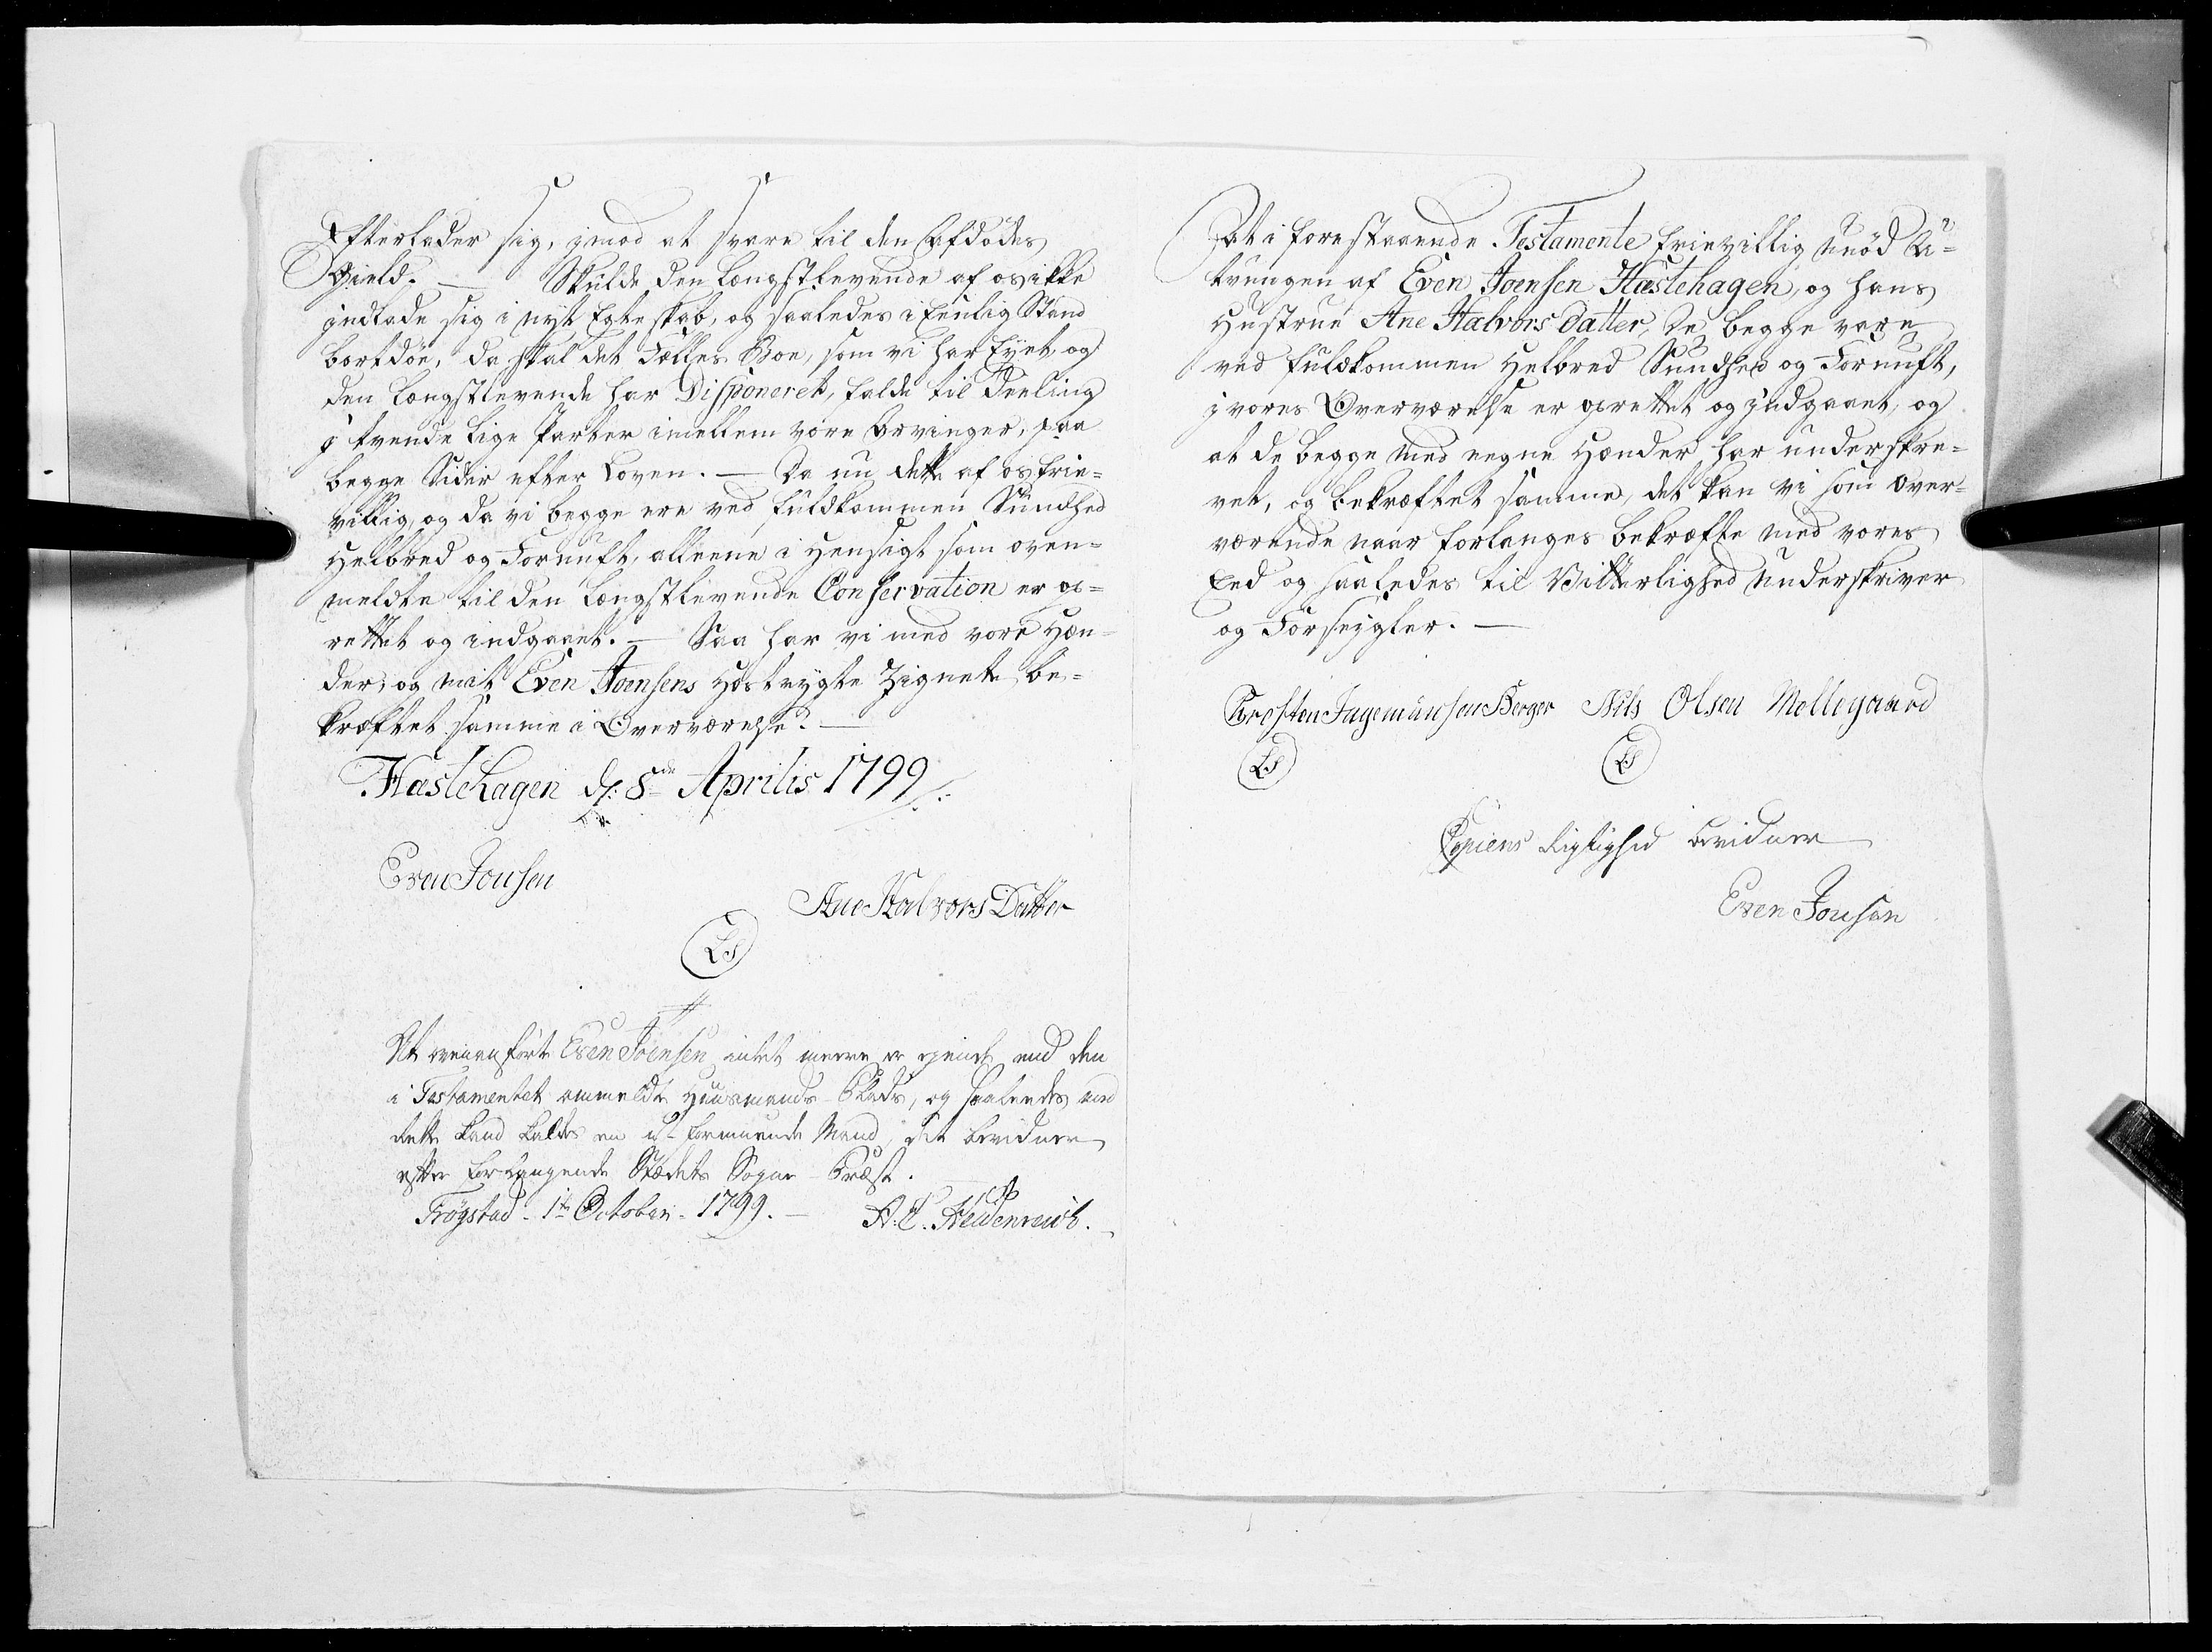 Efterlader sig, imod at svare til den Afdødes
Gield. — Skulde den Længstlevende af os ikke
jndlade sig i nyt Egteskab, og saaledes i Eenlig Stand
bortdøe, da skal det Fælles Boe, som vi har Eyet, og
den Længstlevende har Disponeret, falde til Deeling
i tvende lige Parter imellem vore Arvinger, paa
begge Sider efter Loven. — Da nu dette af os frie=
villig, og da vi begge ere ved fuldkommen Sundhed
Helbred og Fornuft, alleene i Hensigt som oven=
meldte til den Længstlevende Conservation er op=
rettet og indgaaet. — Saa har vi med vore Hæn=
der, og mit Even Joensens hostrygte Zignete be=
kræftet samme i Overværelse. —
Hæstehagen d: 8de Aprilis 1799
Even Jonsen
Ane Halvors Datter
LS
At ovenanførte Even Joensen intet meere er ejende end den
i Testamentet ommeldte Huusmands-Plads, og saaledes med
dette kand kaldes en u-formuende Mand, det bevidner
efter forlangende Stædets Sogne-Præst.
Trøgstad - 1te October - 1799. — A: C. Heidenreich.
At i forestaaende Testamente frievillig unød U=
tvungen af Even Joensen Hæstehagen, og hans
Hustrue Ane Halvors Datter, De begge vare
ved fuldkommen Helbred Sundhed og Fornuft,
i vores Overværelse er oprettet og jndgaaet, og
at de begge med egne Hænder har underskre=
vet, og bekræftet samme, det kan vi som over=
værende naar forlanges bekræfte med vores
Eed og saaledes til Vitterlighed underskriver
og Forseygler. —
Kresten Ingemunsen Berger Nils Olsen Mollegaard
LS LS
Copiens Rigtighed bevidner
Even Jonsen